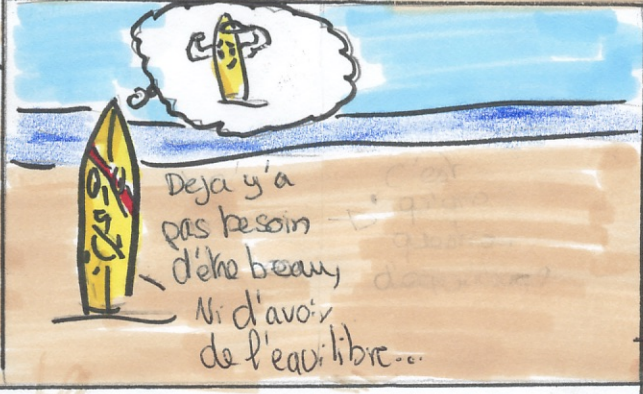 Deja y'a
pas besoin
d'être beau,
Ni d'avoir
de l'équilibre...
c'est